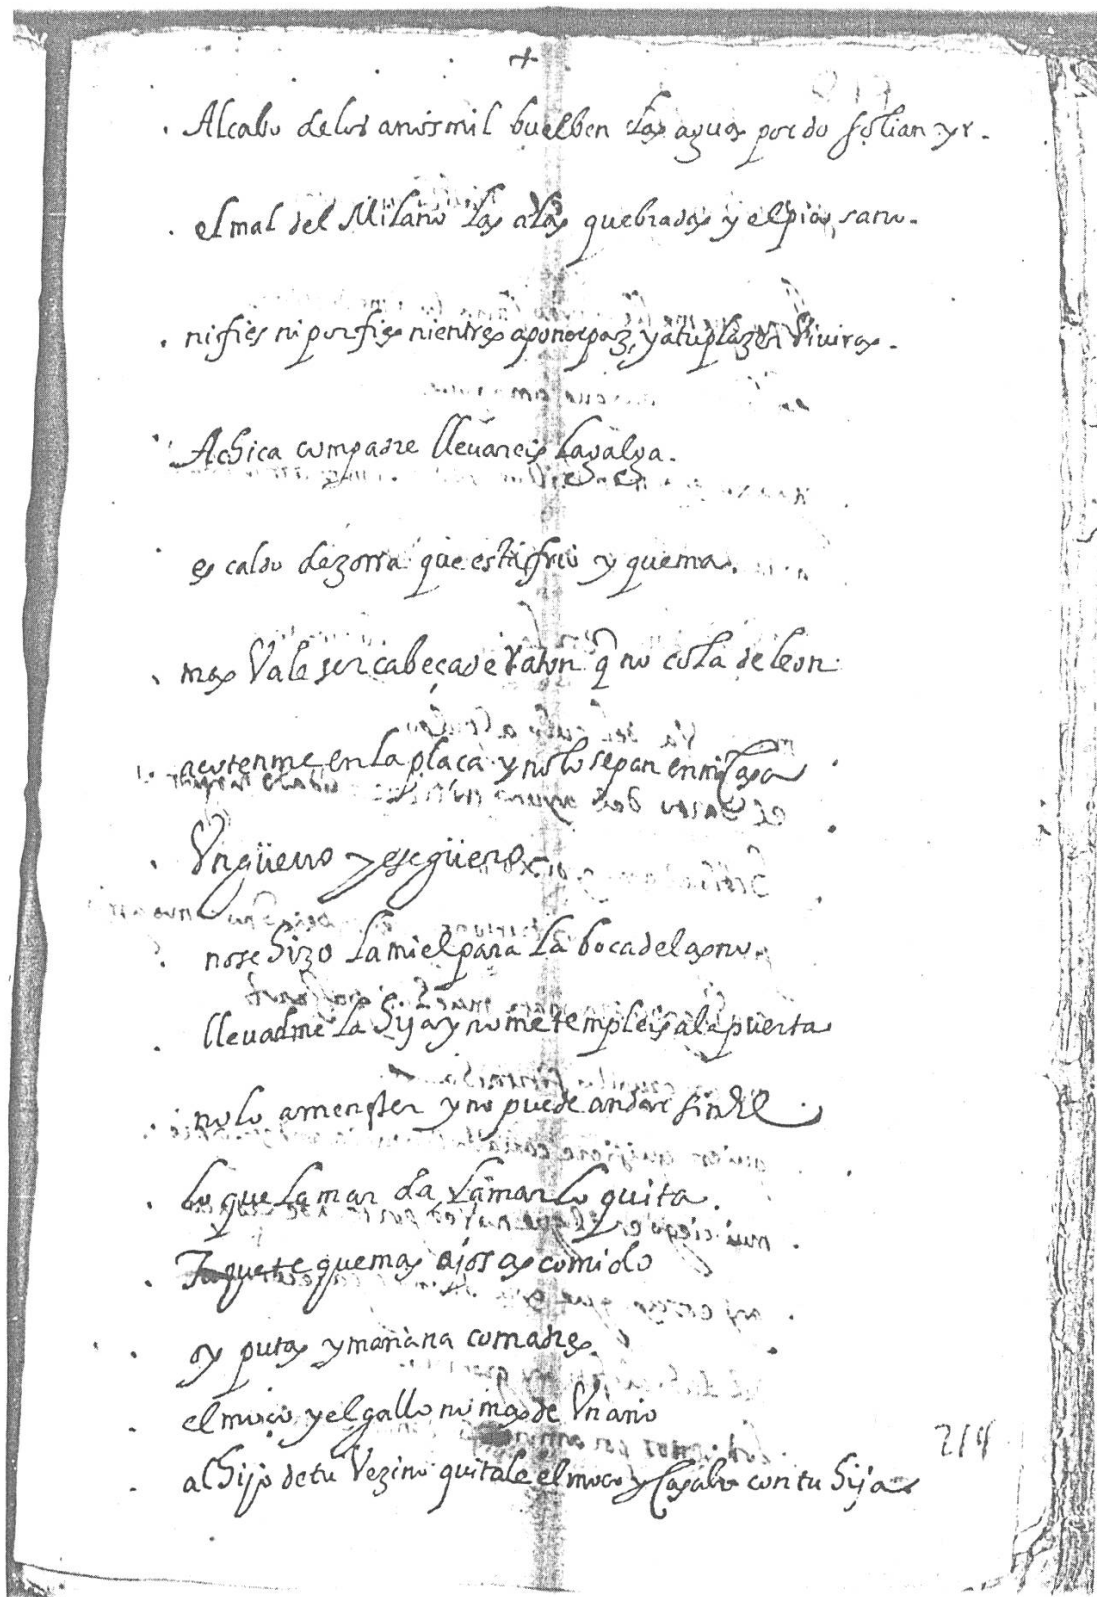 +
Al cabo de los años mil buelben las aguas por do solian yr.
el mal del Milano las alas quebradas y el pico sano.
ni fies ni porfies ni entres a poner paz, y a tu plazer viuiras.
Achica compadre lleuareis la galga.
es caldo de zorra que está frio y quema.
mas Vale ser cabeça de raton q̃ no cola de leon
açotenme en la plaça y no lo sepan en mi casa
Un güeuo y ese güero
no se hizo la miel para la boca del asno.
lleuadme la hija y no me templeis a la puerta
no lo a menester y no puede andar sin el
lo que la mar da la mar lo quita.
que te que mas ajos as comido
oy putas y mañana comadres.
el moço y el gallo no mas de Un año
al hijo de tu Vezino quitale el moco y casalo con tu hija
214